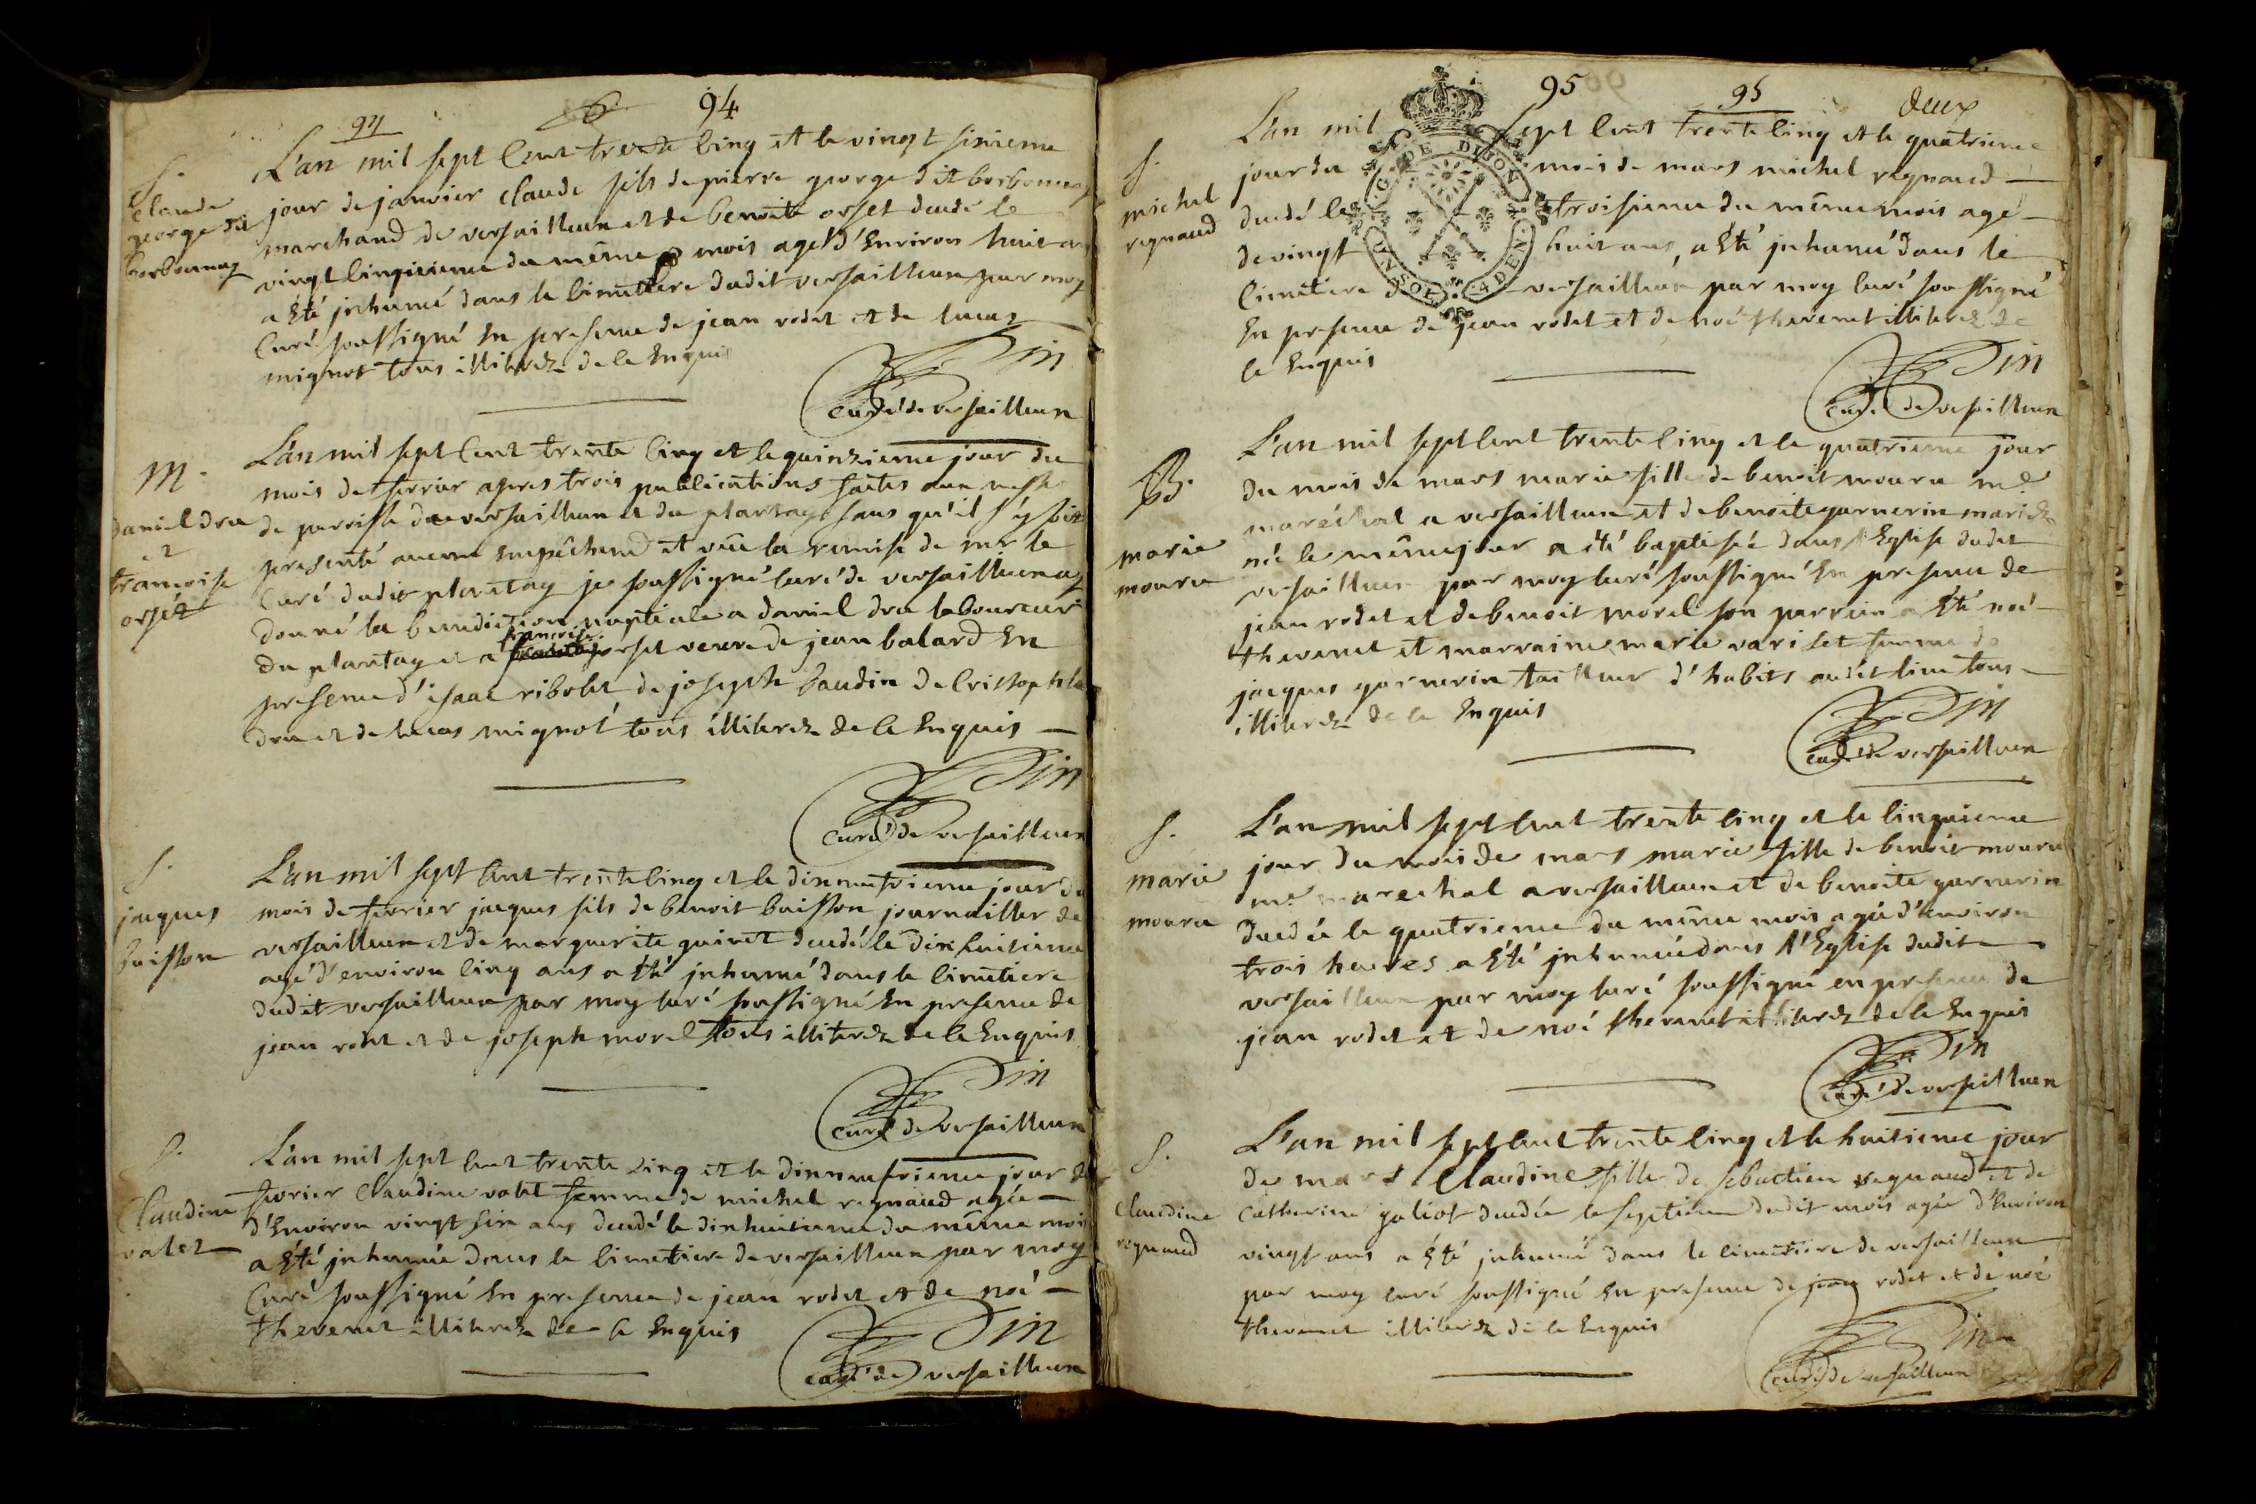 94
94
L'an mil sept Cent trente Cinq et le vingt sixieme
S.
Claude
george dit
borbonnay
jour de janvier claude fils de pierre george dit borbonnay
marchand de versailleux et de benoite orset decedé le
vingt Cinquieme du même mois agé d'Environ huit ans
a Eté jnhumé dans le Cimettiere dudit versailleux par moy
Curé soussigné En presence de jean rodet et de lucas
mignot tous illiterez de ce Enquis
Din
curé de versailleux
M.
daniel dru
et
francoise
orset
L'an mil sept Cent trente Cinq et le quinzieme jour du
mois de fevrier apres trois publications faites aux messes
de parroisse de versailleux et du plantay sans qu'il s'y soit
presenté aucun empêchement et veü la remise de mr le
Curé dudit plantay je soussigné Curé de versailleux ay
donné la benediction nuptiale a daniel dru laboureur
francoise
du plantay et a orset veuve de jean balard En
presence d'isaac ribolet de joseph baudin de Cristophle
dru et de lucas mignot tous illiterez de ce Enquis
Din
curé de versailleux
S.
jacques
buisson
L'an mil sept Cent trente Cinq et le dixneufvieme jour du
mois de fevrier jacques fils de benoit buisson journaillier de
versailleux et de marguerite guinet decedé le dix huitieme
agé d'environ Cinq ans a Eté jnhumé dans le Cimetiere
dudit versailleux par moy Curé soussigné En presence de
jean rodet et de joseph morel tous illiterez de ce Enquis
Din
curé de versailleux
S.
Claudine
valet
L'an mil sept Cent trente Cinq et le dixneufvieme jour de
fevrier Claudine valet femme de michel regnaud agée
d'Environ vingt six ans decedé le dixhuitieme du même mois
a Eté jnhumée dans le Cimetiere de versailleux par moy
Curé soussigné En presence de jean rodet et de noé
thevenet illiterez de ce Enquis
Din
curé de versailleux
95
95
deux
G. DE DIJON
S.
michel
regnaud
L'an mil sept Cent trente Cinq et le quatrieme
jour du mois de mars michel regnaud
decedé le troisieme du même mois agé
de vingt huit ans, a Eté jnhumé dans le
Cimetiere de versailleux par moy Curé soussigné
En presence de jean rodet et de noé thevenet illiterez de
ce Enquis
Din
curé de versailleux
B.
marie
mouru
L'an mil sept Cent trente Cinq et le quatrieme jour
du mois de mars marie fille de benoit mouru me
maréchal a versailleux et de benoite garnerin mariez
née le même jour a été baptisée dans l'Eglise dudit
versailleux par moy Curé soussigné En presence de
jean rodet et de benoit morel son parrain a Eté noé
thevenet et marraine marie variset femme de
jacques garnerin tailleur d'habits audit lieu tous
illiterez de ce Enquis
Din
curé de versailleux
S.
marie
mouru
L'an mil sept Cent trente Cinq et le Cinquieme
jour du mois de mars marie fille de benoit mouru
me marechal a versailleux et de benoite garnerin
decedée le quatrieme du même mois agée d'environ
trois heures a Eté jnhumée dans l'Eglise dudit
versailleux par moy Curé soussigné en presence de
jean rodet et de noé thevenet illiterez de ce Enquis
Din
curé de versailleux
S.
Claudine
regnaud
L'an mil sept Cent trente Cinq et le huitieme jour
de mars Claudine fille de sebastien regnaud et de
Catherine galiot decedée le septieme dudit mois agée d'Environ
vingt ans a Eté jnhumé dans le Cimetiere de versailleux
par moy curé soussigné En presence de jean rodet et de noé
thevenet illiterez de ce Enquis
Din
curé de versailleux